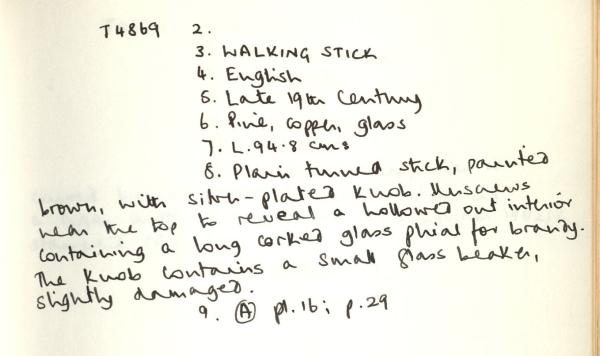 T4869 2.
3. WALKING STICK
4. English
5. Late 19th Century
6. Pine, copper, glass
7. L. 94.8 cms
8. Plain turned stick, painted
brown, with silver-plated knob. Unscrews
near the top to reveal a hollowed out interior
containing a long corked glass phial for brandy.
The knob contains a small glass beaker,
slightly damaged.
9. (A) pl. 16; p. 29